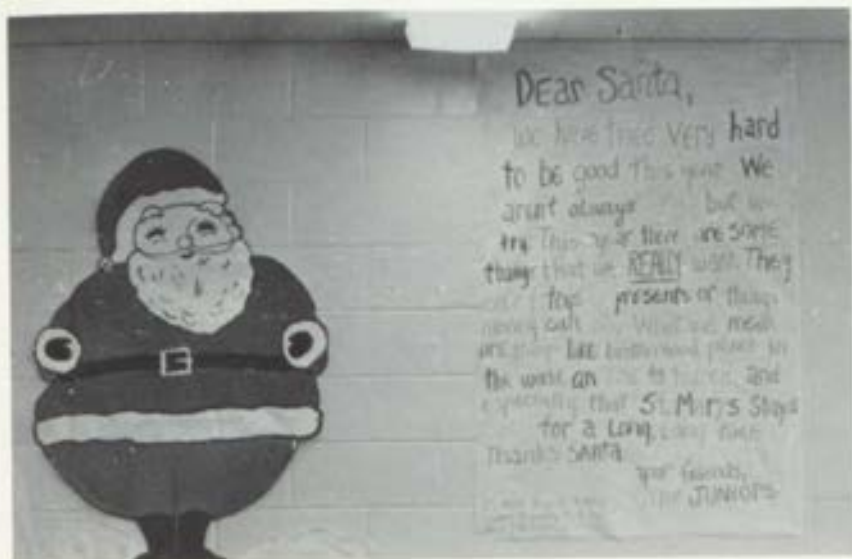 Dear Santa,
We have tried very hard
to be good This year We
aren't always but we
try This year there are some
things that we REALLY want. They
aren't toys presents or things
money can What we mean
are things like brotherhood peace in
the world an end to and
especially that St. Marys Stays
for a Long, Long time
Thanks Santa
your friends,
The JUNIORS